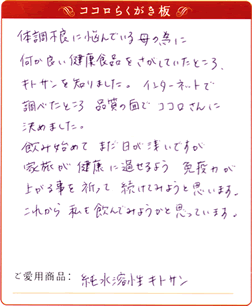 ココロらくがき板
体調不良に悩んでいる母の為に
何か良い健康食品をさがしていたところ、
キトサンを知りました。インターネットで
調べたところ 品質の面でココロさんに
決めました。
飲み始めて まだ日が浅いですが
家族が健康に過せるよう 免疫力が
上がる事を祈って 続けてみようと思います。
これから 私も飲んでみようかと思っています。
ご愛用商品: 純水溶性キトサン